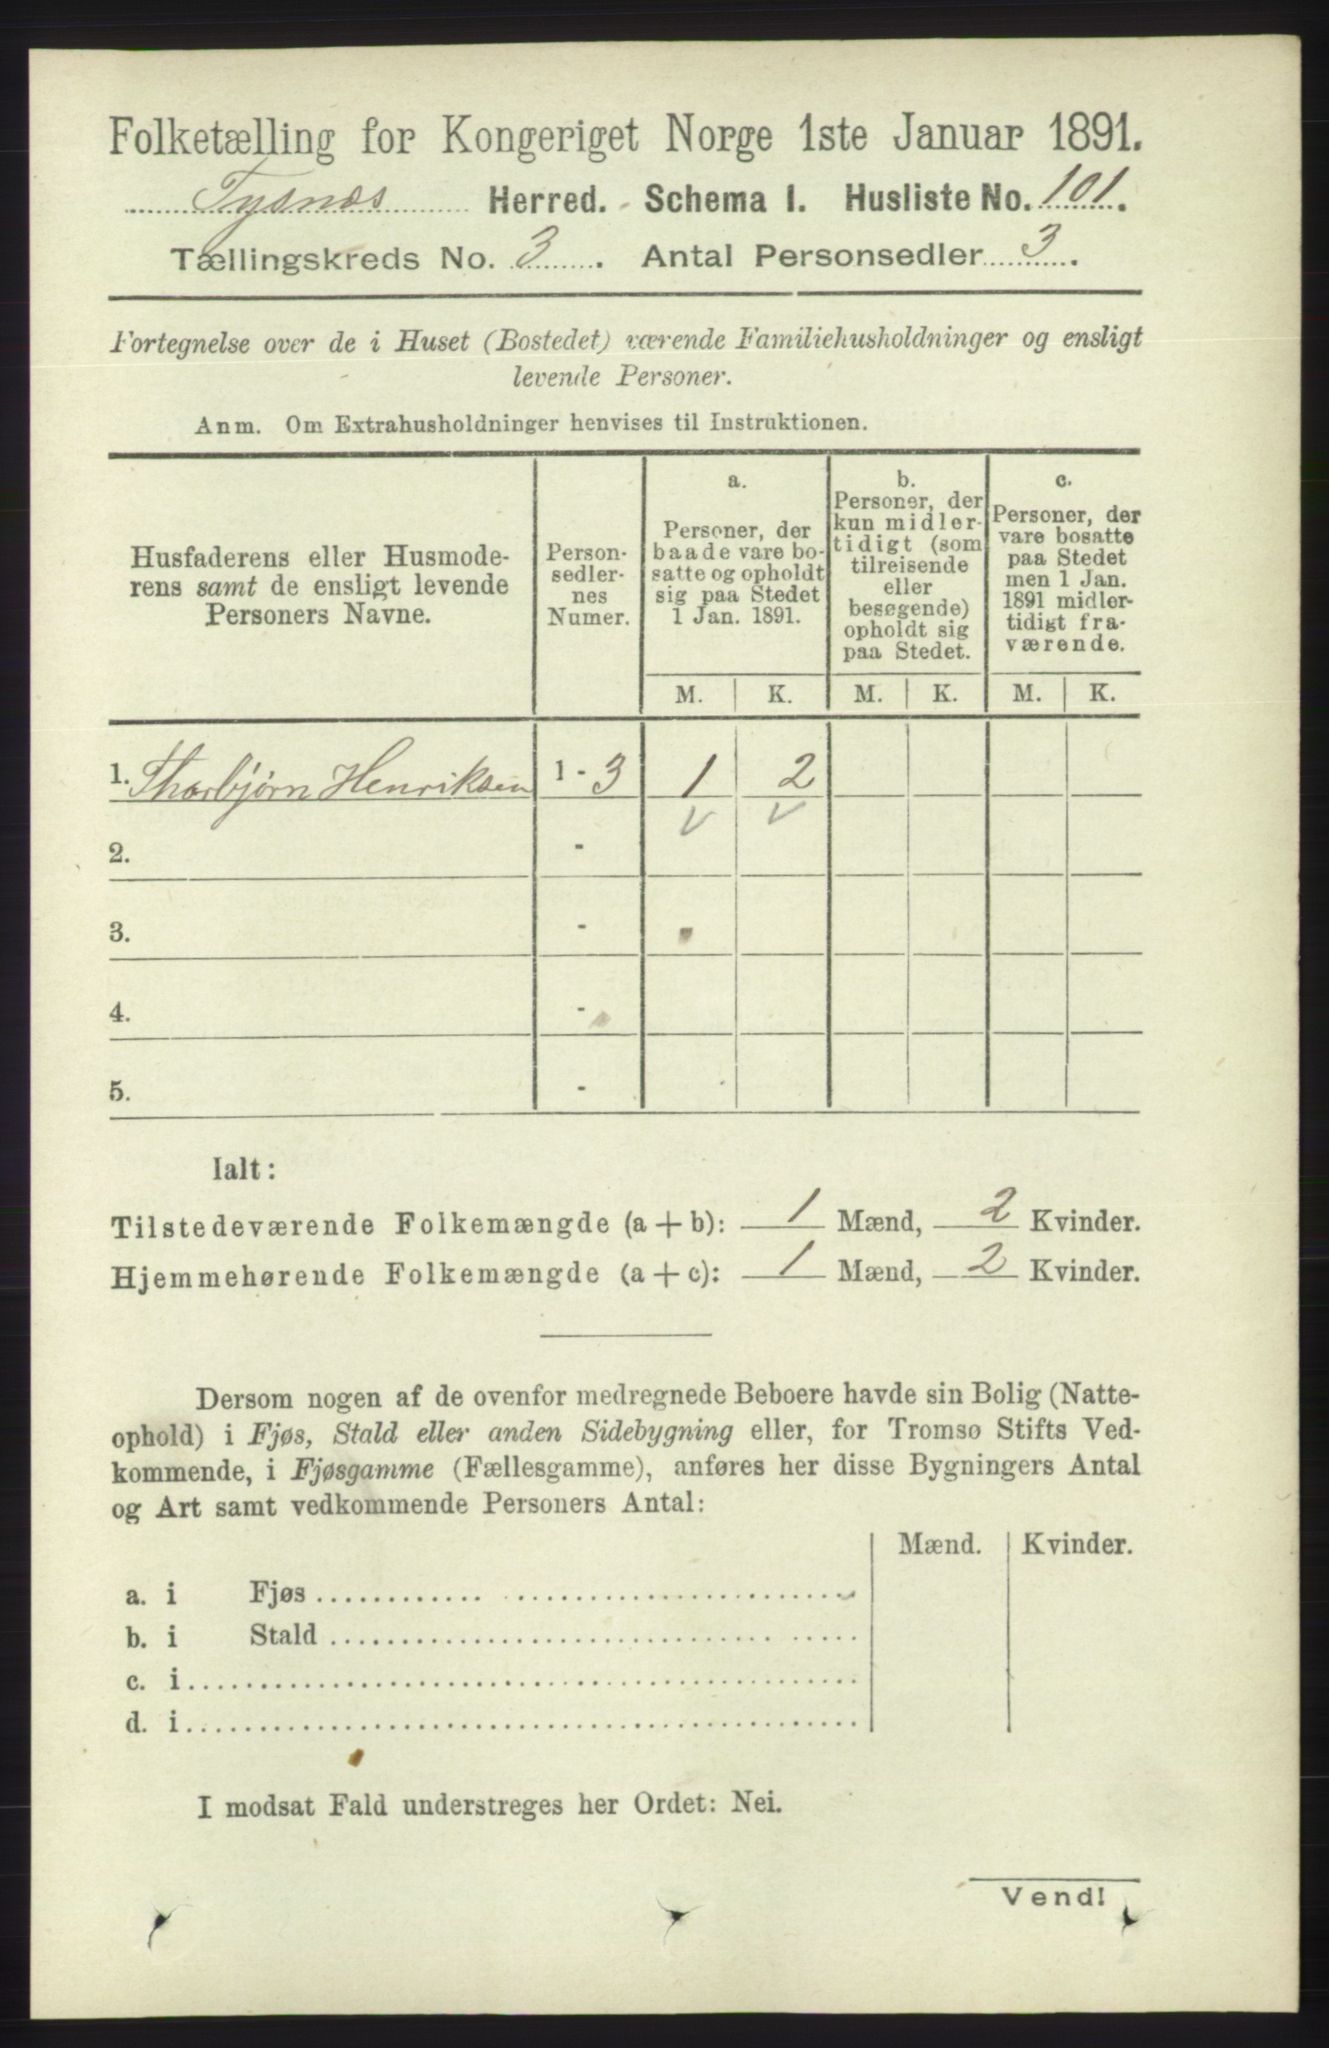 Folketælling for Kongeriget Norge 1ste Januar 1891.
Tysnæs Herred. Schema I. Husliste No. 101.
Tællingskreds No. 3. Antal Personsedler 3.
Fortegnelse over de i Huset (Bostedet) værende Familiehusholdninger og ensligt
levende Personer.
Anm. Om Extrahusholdninger henvises til Instruktionen.
Husfaderens eller Husmode-
rens samt de ensligt levende
Personers Navne.
Person-
sedler-
nes
Numer.
a.
Personer, der
baade vare bo-
satte og opholdt
sig paa Stedet
1 Jan. 1891.
b.
Personer, der
kun midler-
tidigt (som
tilreisende
eller
besøgende)
opholdt sig
paa Stedet.
c.
Personer, der
vare bosatte
paa Stedet
men 1 Jan.
1891 midler-
tidigt fra-
værende.
M. K. M. K. M. K.
1. Thorbjørn Henriksen 1 - 3 1 2
2. -
3. -
4. -
5. -
Ialt:
Tilstedeværende Folkemængde (a + b): 1 Mænd, 2 Kvinder.
Hjemmehørende Folkemængde (a + c): 1 Mænd, 2 Kvinder.
Dersom nogen af de ovenfor medregnede Beboere havde sin Bolig (Natte-
ophold) i Fjøs, Stald eller anden Sidebygning eller, for Tromsø Stifts Ved-
kommende, i Fjøsgamme (Fællesgamme), anføres her disse Bygningers Antal
og Art samt vedkommende Personers Antal:
Mænd. Kvinder.
a. i Fjøs
b. i Stald
c. i
d. i
I modsat Fald understreges her Ordet: Nei.
Vend!